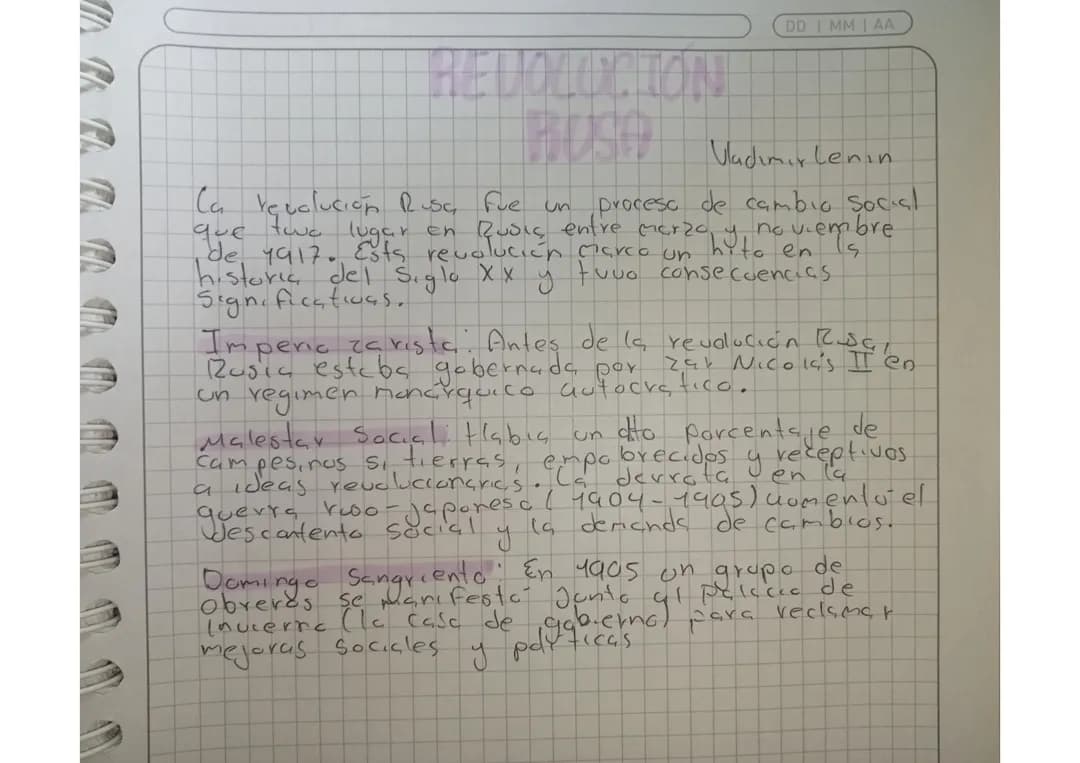 DD | MM | AA
REVOLUCIÓN
RUSA
Vladimir Lenin
La revolución Rusa fue un proceso de cambio social
que tuvo lugar en Rusia entre marzo y noviembre
de 1917. Esta revolución marco un hito en la
historia del Siglo XX y tuvo consecuencias
Significativas.
Imperio zarista: Antes de la revolución Rusa,
Rusia estaba gobernada por zar Nicolás II en
un regimen monárquico autocratico.
Malestar Social: Había un alto porcentaje de
campesinos si tierras, empobrecidos y receptivos
a ideas revolucionarias. La derrota en la
guerra ruso-japonesa (1904-1905) aumento el
descontento social y la demanda de cambios.
Domingo Sangriento: En 1905 un grupo de
obreros se manifesto junto al palacio de
invierno (la casa de gobierno) para reclamar
mejoras sociales y políticas